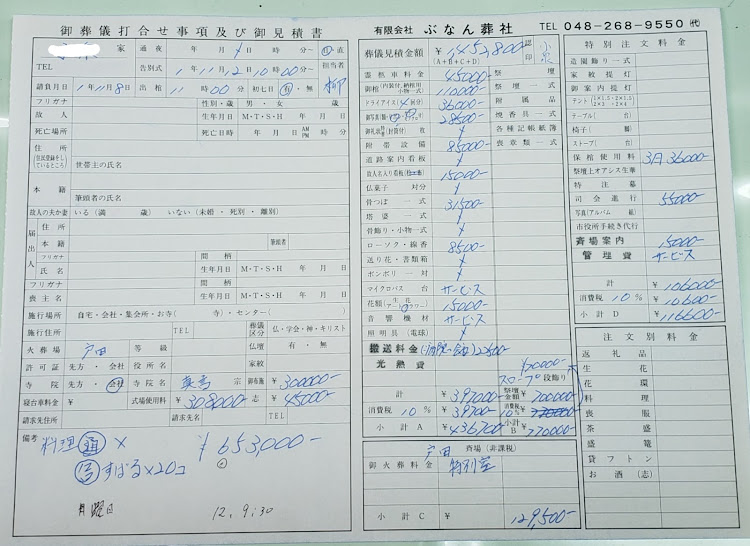 御葬儀打合せ事項及び御見積書
有限会社 ぶなん葬社 TEL 048-268-9550 ㈹
家 通夜 年 月 日 時 分〜 直
TEL 告別式 1年11月12日 10時00分〜 担当者
請負月日 1年11月8日 出棺 11時00分 初七日 有・無 柳
フリガナ 性別・歳 男・女 歳
故人 生年月日 M・T・S・H 年 月 日
死亡場所 死亡日時 年 月 日 AM PM 時 分
住所
(住民登録をしているところ) 世帯主の氏名
本籍
筆頭者の氏名
故人の夫か妻 いる(満 歳) いない(未婚・死別・離別)
届出人
住所
本籍 筆頭者
フリガナ 間柄
氏名 生年月日 M・T・S・H 年 月 日
フリガナ 間柄
喪主名 生年月日 M・T・S・H 年 月 日
施行場所 自宅・会社・集会所・お寺( 寺)・センター( )
施行住所 TEL 葬儀区分 仏・学会・神・キリスト
火葬場 戸田 等級 仏壇 有・無
許可証 先方・会社 役所名 家紋
寺院 先方・会社 寺院名 真言 宗 御布施 ¥300000
寝台車料金 ¥ 式場使用料 ¥308000 志 ¥45000
請求先住所 請求先名 TEL
備考 料理 通 × ¥653000-
すばる×20コ
月曜日 12.9:30
葬儀見積金額 ¥1452800 認印
(A+B+C+D)
霊柩車料金 45000-
御棺(内装付,納棺用小物一式) 110000-
ドライアイス(4回分) 36000
28500-
御礼品(封筒付) 枚
付帯設備 85000-
道路案内看板
故人名入り看板 15000-
仏菓子 対分
骨つぼ 一式 31500
塔婆 一式
骨飾り・小物一式
ローソク・線香 8500-
送り花・書類箱
ボンボリ 一対
マイクロバス 台 サービス
花額 15000-
音響機材 サービス
照明具(電球)
搬送料金 22500-
光熱費
計 ¥397000-
消費税 10% ¥39700-
小計A ¥436700
祭壇
祭壇 一式
附属品
焼香具一式
各種記帳紙筆
喪章類一式
¥70000-
スロープ段飾り
祭壇金額 ¥700000
消費税 10%
小計B ¥770000
戸田 斎場(非課税)
御火葬料金 特別室
小計C ¥ 129,500-
特別注文料金
造園飾り一式
家紋提灯
御案内提灯
テント
テーブル(台)
椅子(脚)
ストーブ(台)
保棺使用料 3月 36000-
祭壇上オアシス生華
特注幕
司会進行 55000
写真(アルバム 組)
市役所手続き代行
斎場案内 15000
管理費 サービス
計 ¥106000-
消費税 10% ¥10600-
小計D ¥116600-
注文別料金
返礼品
生花
花環
料理
喪服
茶盛
盛籠
貸フトン
お酒(志)